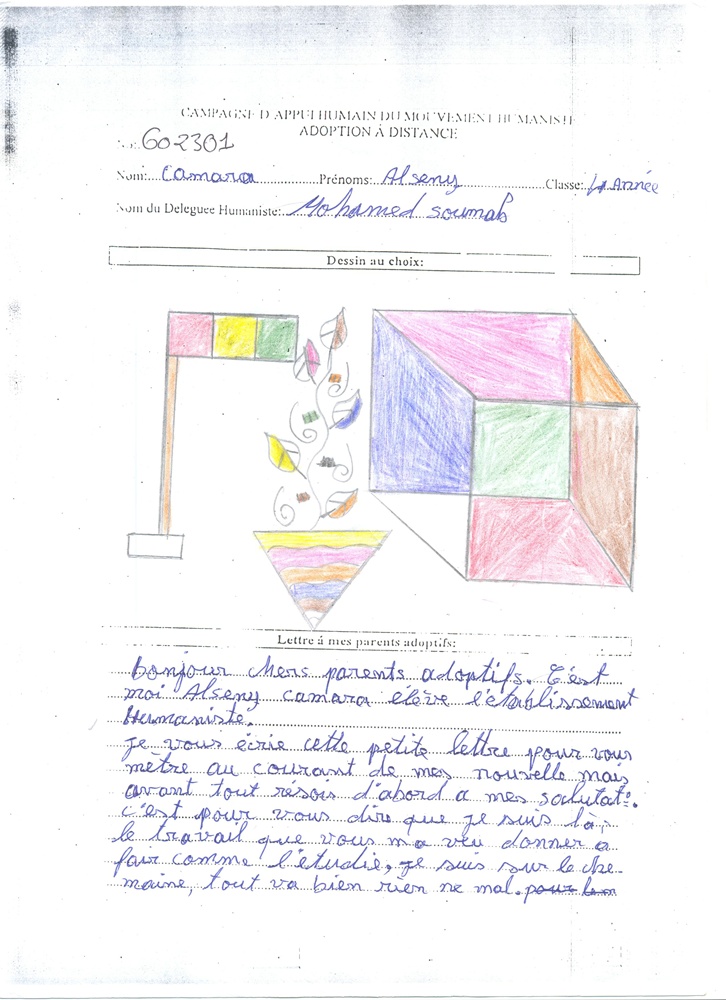 CAMPAGNE D'APPUI HUMAIN DU MOUVEMENT HUMANISTE
ADOPTION À DISTANCE
No: 602301
Nom: Camara Prénoms: Alseny Classe: Année
Nom du Deleguee Humaniste: Mohamed soumah
Dessin au choix:
Lettre á mes parents adoptifs:
bonjour Mers parents adoptifs. C'est
moi Alseny camara élève l'établissement
Humaniste.
je vous écrie cette petite lettre pour vous
mètre au courant de mes nouvelle mais
avant tout résois d'abord a mes salutat°.
c'est pour vous dire que je suis là,
le travail que vous ma veu donner a
fair comme l'étudié, je suis sur le che-
maine, tout va bien rien ne mal. pour